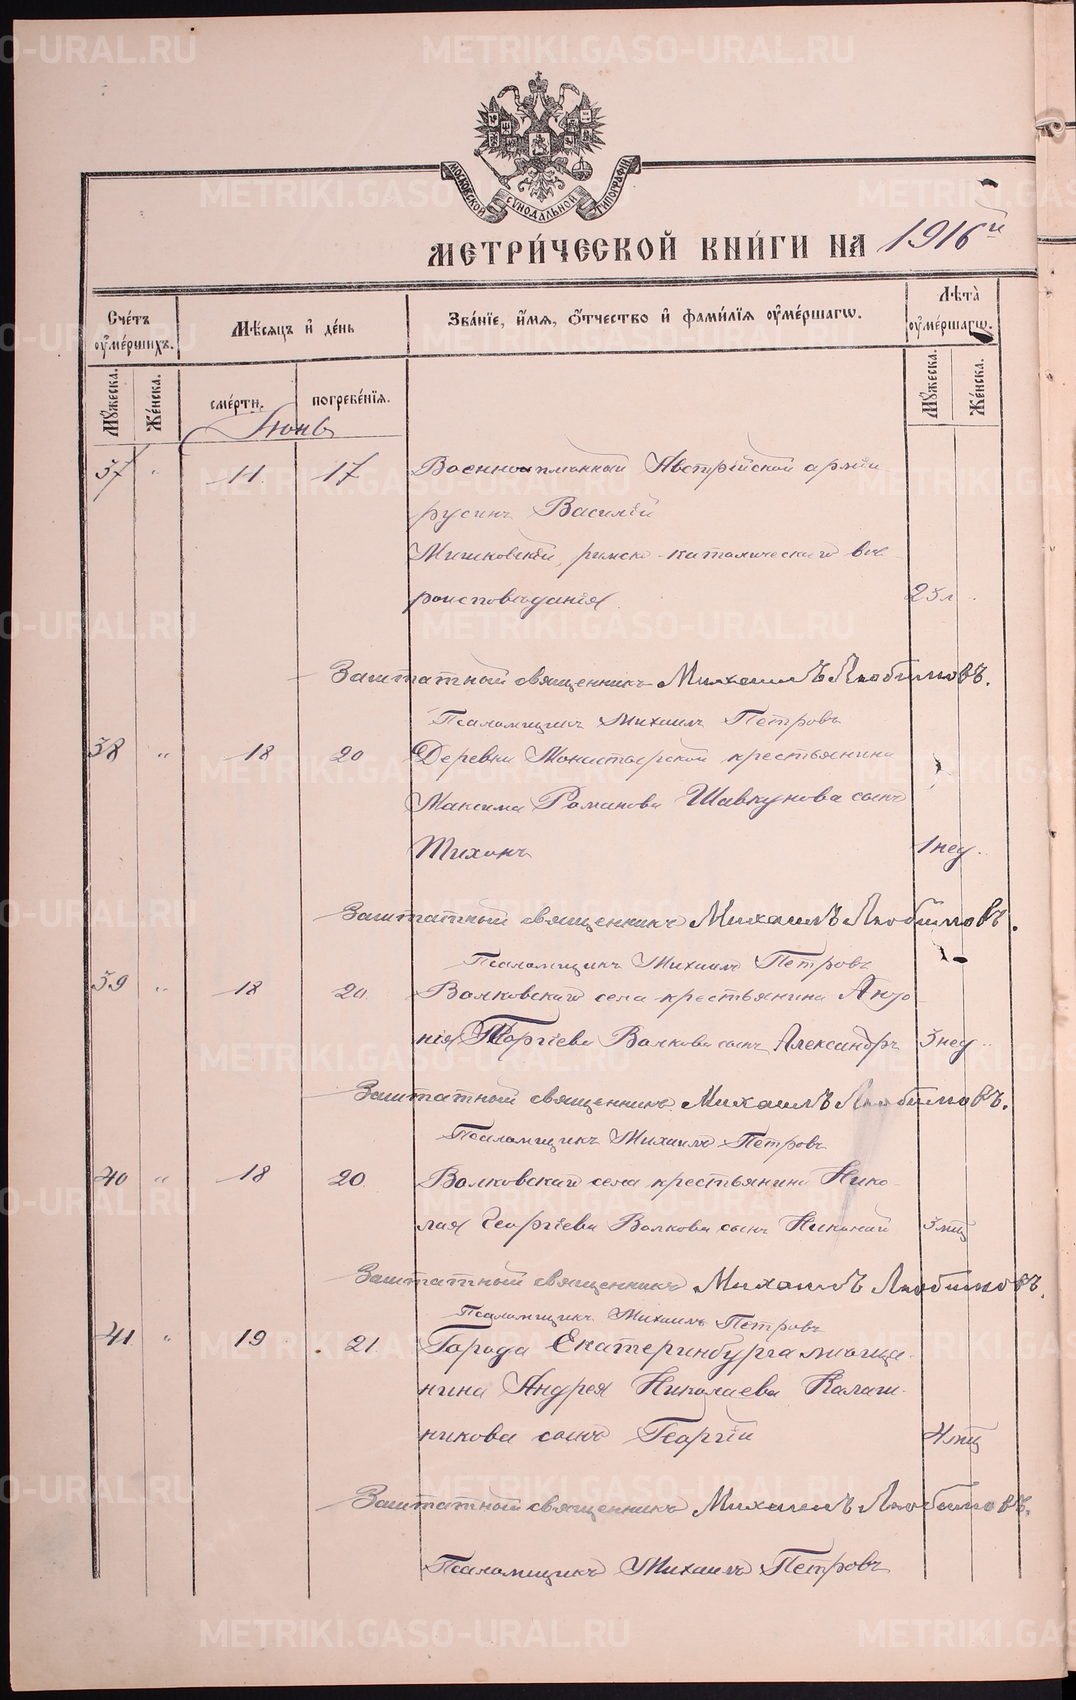 METRIKI.GASO-URAL.RU
МОСКОВСКОЙ СѴНОДАЛЬНОЙ ТИПОГРАФІИ
МЕТРИ́ЧЕСКОЙ КНИ́ГИ НА 1916й
Счетъ оумершихъ.
Мѣсяцъ и день
Званіе, имя, отчество и фамилія оумершагѡ.
Лѣта оумершагѡ.
Мужеска.
Женска.
смерти.
погребенія.
Мужеска.
Женска.
Іюнь
37 „ 11 17 Военноплѣнный Австрійской арміи
русинъ Василій
Мишковскій, римско-католическаго вѣ-
роисповѣданія. 23 л.
Заштатный священникъ Михаилъ Любимовъ.
Псаломщикъ Михаилъ Петровъ
38 „ 18 20 Деревни Монастырской крестьянина
Максима Романова Шавкунова сынъ
Тихонъ 1 нед.
Заштатный священникъ Михаилъ Любимовъ.
Псаломщикъ Михаилъ Петровъ
39 „ 18 20 Волковскаго села крестьянина
Волкова сынъ Александръ 3 нед.
Заштатный священникъ Михаилъ Любимовъ.
Псаломщикъ Михаилъ Петровъ
40 „ 18 20 Волковскаго села крестьянина Нико-
лая Георгіева Волкова сынъ Николай 3 мѣс
Заштатный священникъ Михаилъ Любимовъ.
Псаломщикъ Михаилъ Петровъ
41 „ 19 21 Города Екатеринбурга мѣща-
нина Андрея Николаева Калаш-
никова сынъ Георгій 4 мѣс
Заштатный священникъ Михаилъ Любимовъ.
Псаломщикъ Михаилъ Петровъ